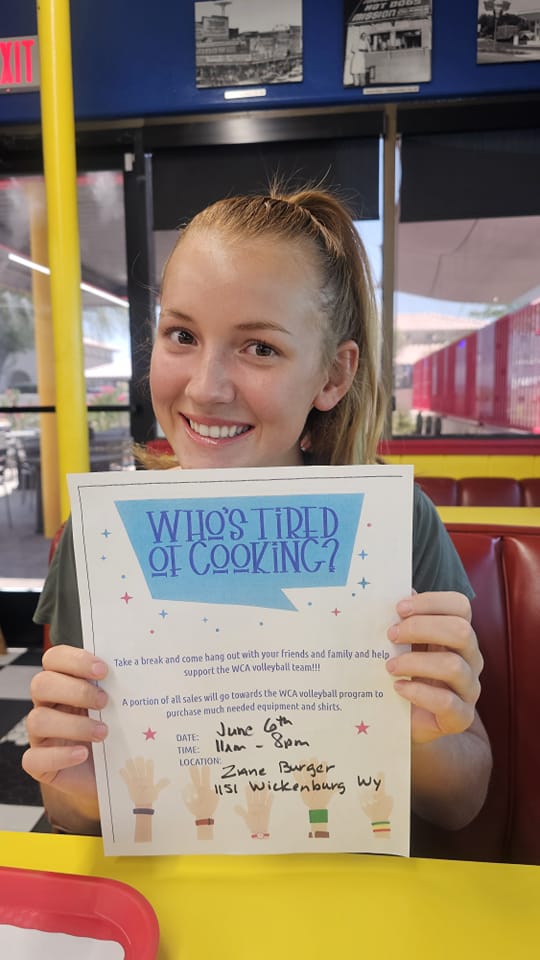 EXIT
HOT DOGS
MISSION
WHO'S TIRED
OF COOKING?
Take a break and come hang out with your friends and family and help
support the WCA volleyball team!!!
A portion of all sales will go towards the WCA volleyball program to
purchase much needed equipment and shirts.
DATE: June 6th
TIME: 11am - 8pm
LOCATION:
Zane Burger
1151 Wickenburg Wy